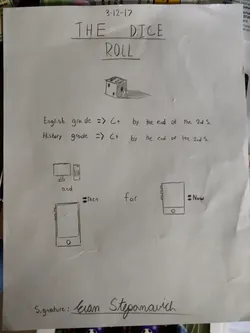 3-12-17
THE DICE
ROLL
English grade => C+ by the end of the 2nd S.
History grade => C+ for the end of the 2nd S.
and
for
Now
Signature: Stepanovich